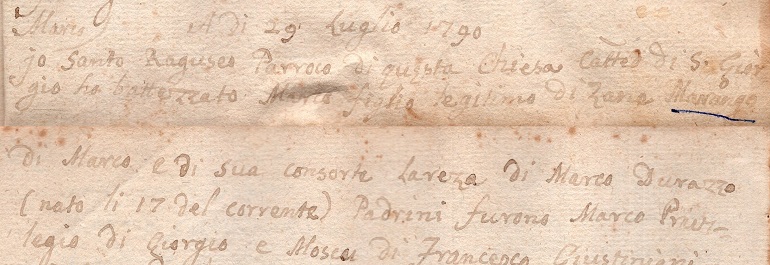 Marco A di 29 Luglio 1790
jo Santo Raguseo Parroco di questa Chiesa Catted di S. Gior
gio ho battezzato Marco figlio legitimo di Zana Marango
di Marco e di sua consorte Lareza di Marco Durazzo
(nato li 17 del corrente) Padrini furono Marco Privi-
legio di Giorgio e Mosca di Francesco Giustiniani